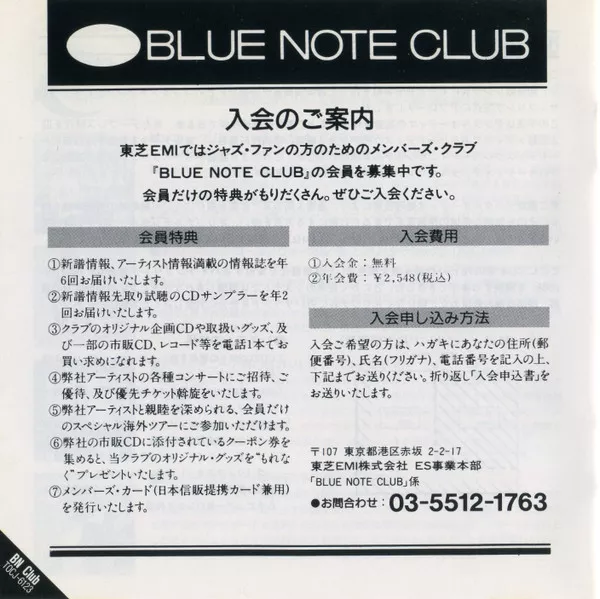 BLUE NOTE CLUB
入会のご案内
東芝EMIではジャズ・ファンの方のためのメンバーズ・クラブ
『BLUE NOTE CLUB』の会員を募集中です。
会員だけの特典がもりだくさん。ぜひご入会ください。
会員特典
①新譜情報、アーティスト情報満載の情報誌を年
6回お届けいたします。
②新譜情報先取り試聴のCDサンプラーを年2
回お届けいたします。
③クラブのオリジナル企画CDや取扱いグッズ、及
び一部の市販CD、レコード等を電話1本でお
買い求めになれます。
④弊社アーティストの各種コンサートにご招待、ご
優待、及び優先チケット斡旋をいたします。
⑤弊社アーティストと親睦を深められる、会員だけ
のスペシャル海外ツアーにご参加いただけます。
⑥弊社の市販CDに添付されているクーポン券を
集めると、当クラブのオリジナル・グッズを“もれな
く”プレゼントいたします。
⑦メンバーズ・カード(日本信販提携カード兼用)
を発行いたします。
入会費用
①入会金：無料
②年会費：￥2,548(税込)
入会申し込み方法
入会ご希望の方は、ハガキにあなたの住所(郵
便番号)、氏名(フリガナ)、電話番号を記入の上、
下記までお送りください。折り返し「入会申込書」を
お送りいたします。
〒107 東京都港区赤坂 2-2-17
東芝EMI株式会社 ES事業本部
「BLUE NOTE CLUB」係
●お問合わせ：03-5512-1763
BN Club
TOCJ-6123